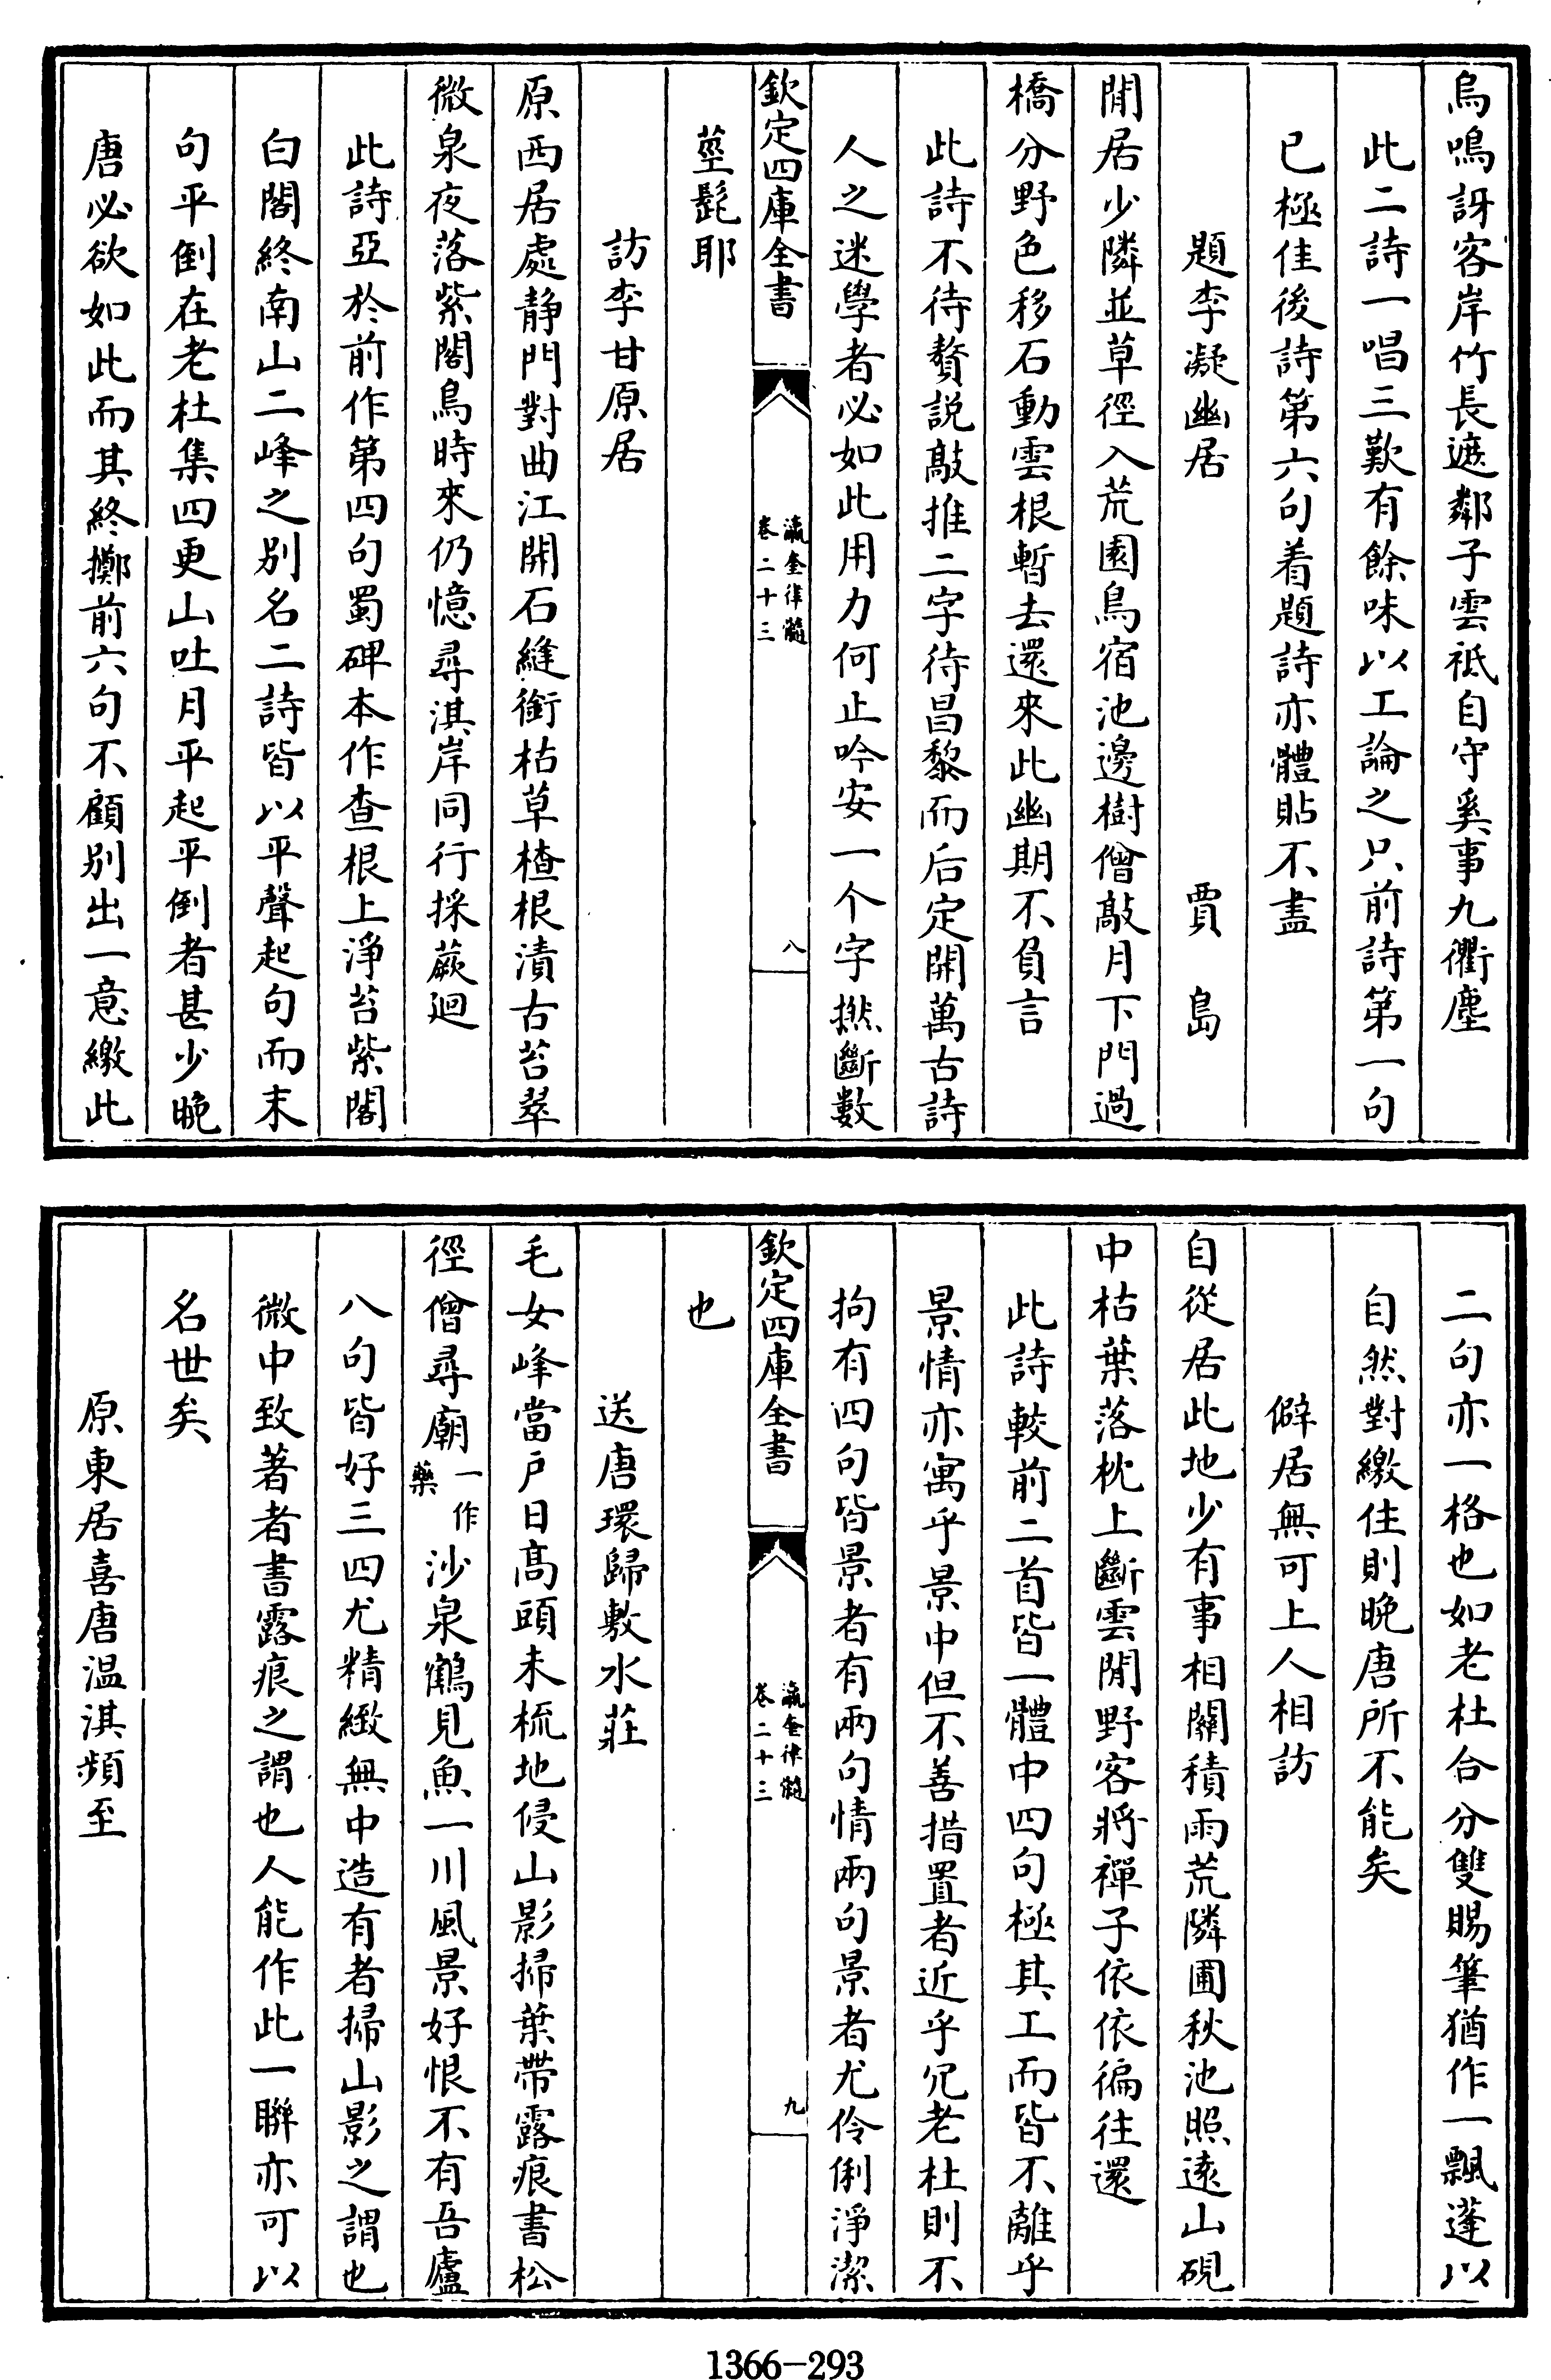 烏鳴訝客岸竹長遮鄰子雲祗自守奚事九衢塵
此二詩一唱三歎有餘味以工論之只前詩第一句
已極佳後詩第六句着題詩亦體貼不盡
題李凝幽居　賈島
閒居少隣並草徑入荒園鳥宿池邊樹僧敲月下門過
橋分野色移石動雲根暫去還來此幽期不負言
此詩不待贅説敲推二字待昌黎而后定開萬古詩
人之迷學者必如此用力何止吟安一个字撚斷數
欽定四庫全書　瀛奎律髓　卷二十三　八
莖髭耶
訪李甘原居
原西居處静門對曲江開石縫銜枯草楂根漬古苔翠
微泉夜落紫閣鳥時來仍憶尋淇岸同行採蕨迴
此詩亞於前作第四句蜀碑本作查根上淨苔紫閣
白閣終南山二峰之别名二詩皆以平聲起句而末
句平倒在老杜集四更山吐月平起平倒者甚少晩
唐必欲如此而其終擲前六句不顧别出一意繳此
二句亦一格也如老杜合分雙賜筆猶作一飄蓬以
自然對繳住則晩唐所不能矣
僻居無可上人相訪
自從居此地少有事相關積雨荒隣圃秋池照逺山硯
中枯葉落枕上斷雲閒野客將禪子依依徧往還
此詩較前二首皆一體中四句極其工而皆不離乎
景情亦寓乎景中但不善措置者近乎冗老杜則不
拘有四句皆景者有兩句情兩句景者尤伶俐淨潔
欽定四庫全書　瀛奎律髓　卷二十三　九
也
送唐環歸敷水莊
毛女峰當戶日髙頭未梳地侵山影掃葉帶露痕書松
徑僧尋廟一作藥沙泉鶴見魚一川風景好恨不有吾廬
八句皆好三四尤精緻無中造有者掃山影之謂也
微中致著者書露痕之謂也人能作此一聯亦可以
名世矣
原東居喜唐温淇頻至
1366-293